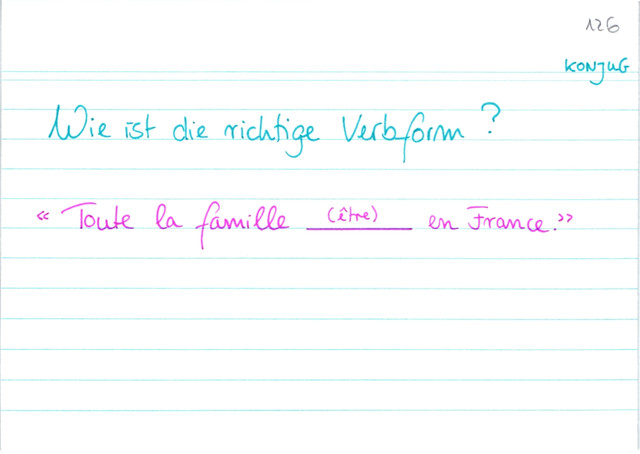 126
KONJUG
Wie ist die richtige Verbform?
« Toute la famille (être) en France. »